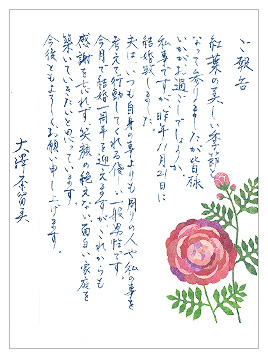 ご報告
紅葉の美しい季節と
なって参りましたが皆様
いかがお過ごしでしょうか。
私事ですが昨年11月21日に
結婚致しました。
夫は、いつも自身の事よりも周りの人や私の事を
考えて行動してくれる優しい一般男性です。
今月で結婚一周年を迎えますが、これからも
感謝を忘れず、笑顔の絶えない面白い家庭を
築いていきたいと思っています。
今後ともよろしくお願い申し上げます。
大澤